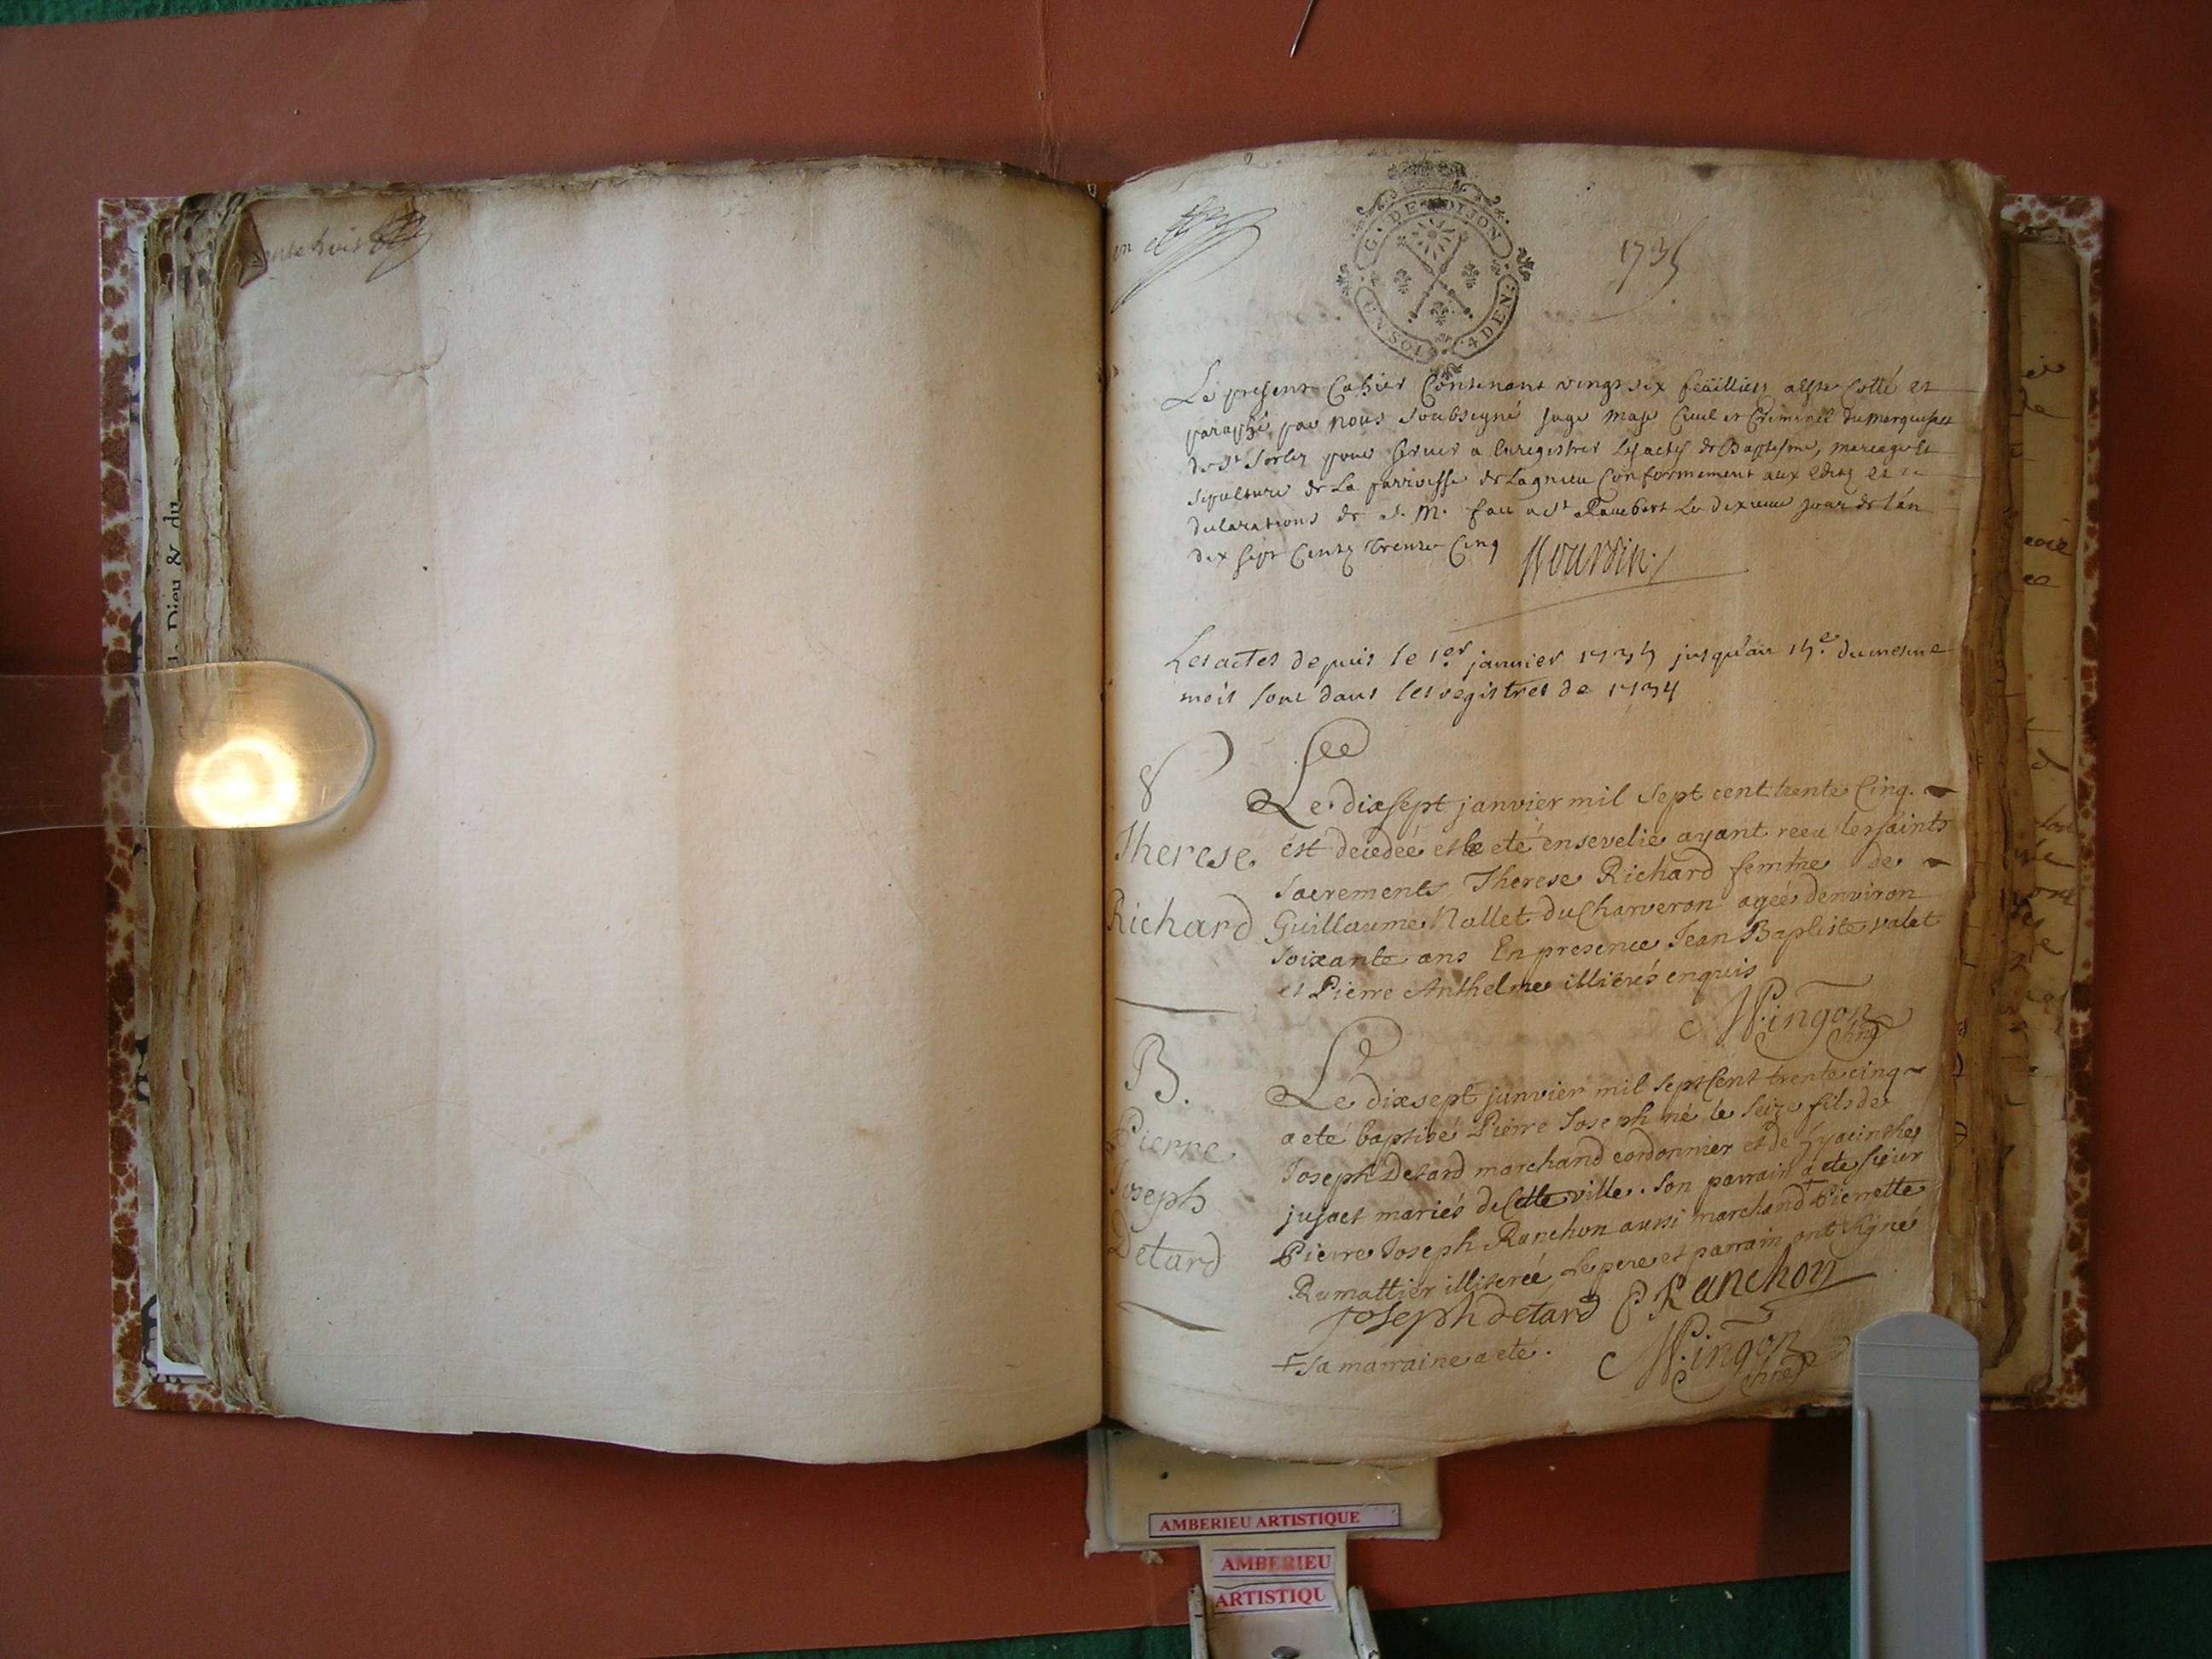 ante huit
un
G. DE DIJON
UN SOL
4 DEN.
1735
Le present Cahier Contenant vingt six feüilliets a esté Cotté et
paraphé par nous Soubsigné Juge maje Civil et Criminel du marquisat
de St Sorlin pour servir a Enregistrer les actes de Baptesme, mariage et
sepulture de La parroisse de Lagnieu Conformement aux edits et
declarations de S. M. fait a St Rambert Le dixieme jour de l'an
dix sept Cents Trente Cinq
Les actes depuis le 1er janvier 1735 jusqu'au 15e du mesme
mois sont dans les registres de 1734
Therese
Richard
Le dixsept janvier mil sept cent trente Cinq.
est decedée et a eté ensevelie ayant receu les saints
sacrements Therese Richard femme de
Guillaume Nallet du Charveron agée d'environ
soixante ans En presence Jean Baptiste valet
et Pierre Anthelme illiterés enquis
Mingon
B.
Pierre
Joseph
Detard
Le dixsept janvier mil sept Cent trente cinq
a eté baptisé Pierre Joseph né le seize fils de
Joseph Detard marchand cordonnier et de hyacinthe
jujaet mariés de Cette ville. Son parrain a eté sieur
Pierre Joseph Ranchon aussi marchand + Pierrette
Rumattier illiterée Le pere et parrain ont signé
Joseph detard P Ranchon
+ sa marraine a eté.
Mingon
Dieu & du
AMBERIEU ARTISTIQUE
AMBERIEU
ARTISTIQU